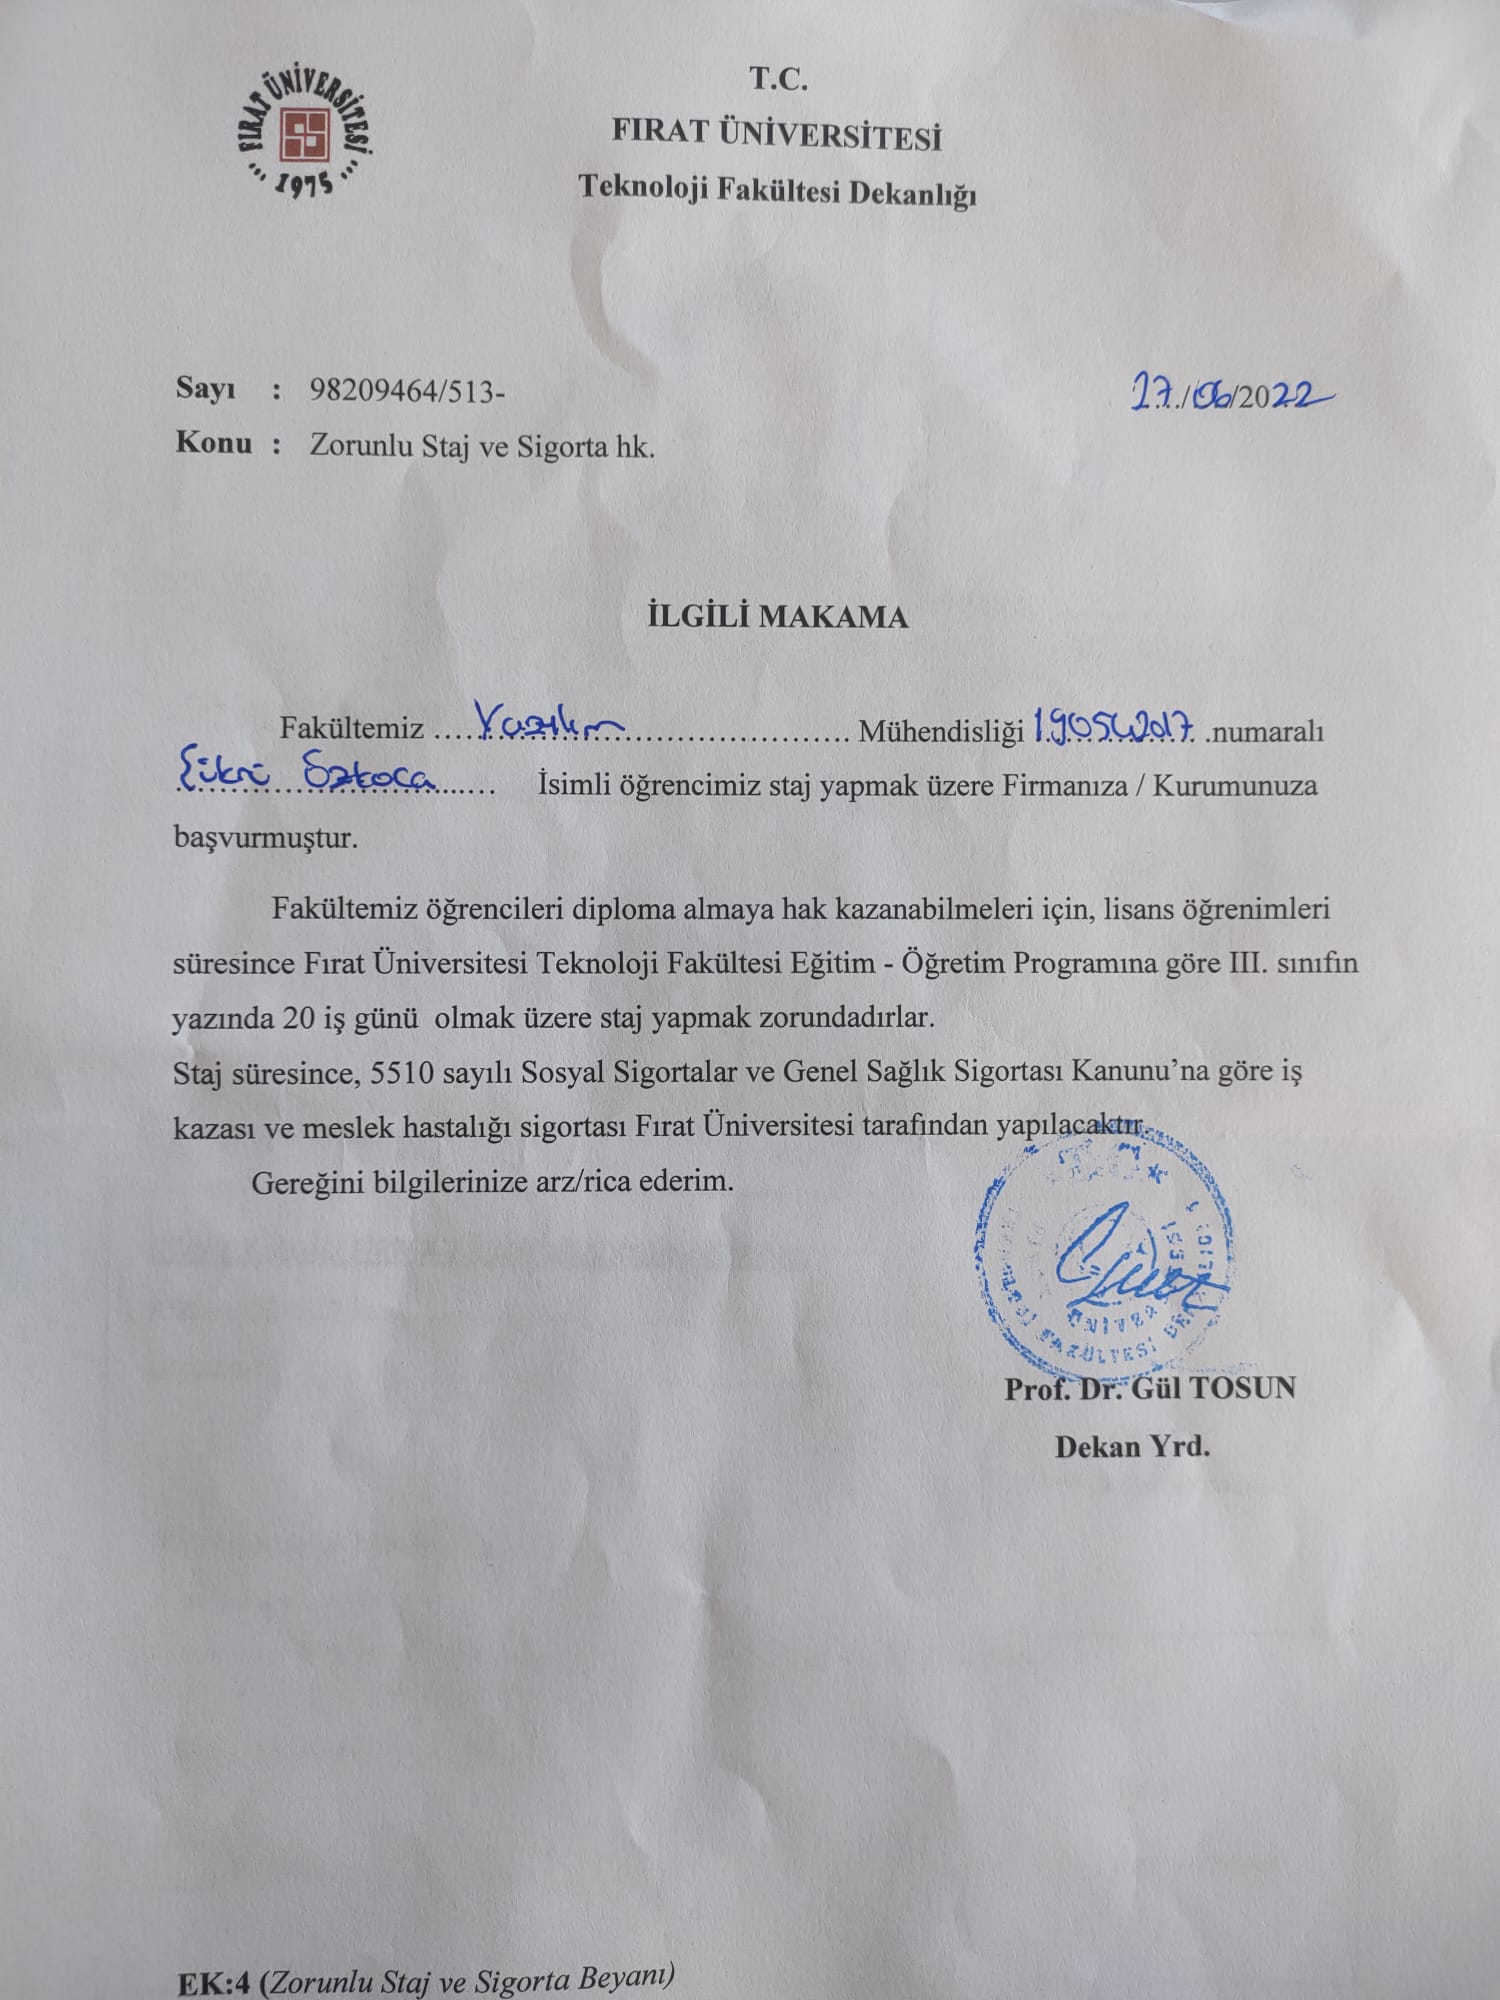 FIRAT ÜNİVERSİTESİ
1975
T.C.
FIRAT ÜNİVERSİTESİ
Teknoloji Fakültesi Dekanlığı
Sayı : 98209464/513-
27./06/2022
Konu : Zorunlu Staj ve Sigorta hk.
İLGİLİ MAKAMA
Fakültemiz ..... Yazılım ..... Mühendisliği ..... .numaralı
Özkoca ..... İsimli öğrencimiz staj yapmak üzere Firmanıza / Kurumunuza
başvurmuştur.
Fakültemiz öğrencileri diploma almaya hak kazanabilmeleri için, lisans öğrenimleri
süresince Fırat Üniversitesi Teknoloji Fakültesi Eğitim - Öğretim Programına göre III. sınıfın
yazında 20 iş günü olmak üzere staj yapmak zorundadırlar.
Staj süresince, 5510 sayılı Sosyal Sigortalar ve Genel Sağlık Sigortası Kanunu’na göre iş
kazası ve meslek hastalığı sigortası Fırat Üniversitesi tarafından yapılacaktır.
Gereğini bilgilerinize arz/rica ederim.
FAKÜLTESİ
Prof. Dr. Gül TOSUN
Dekan Yrd.
EK:4 (Zorunlu Staj ve Sigorta Beyanı)